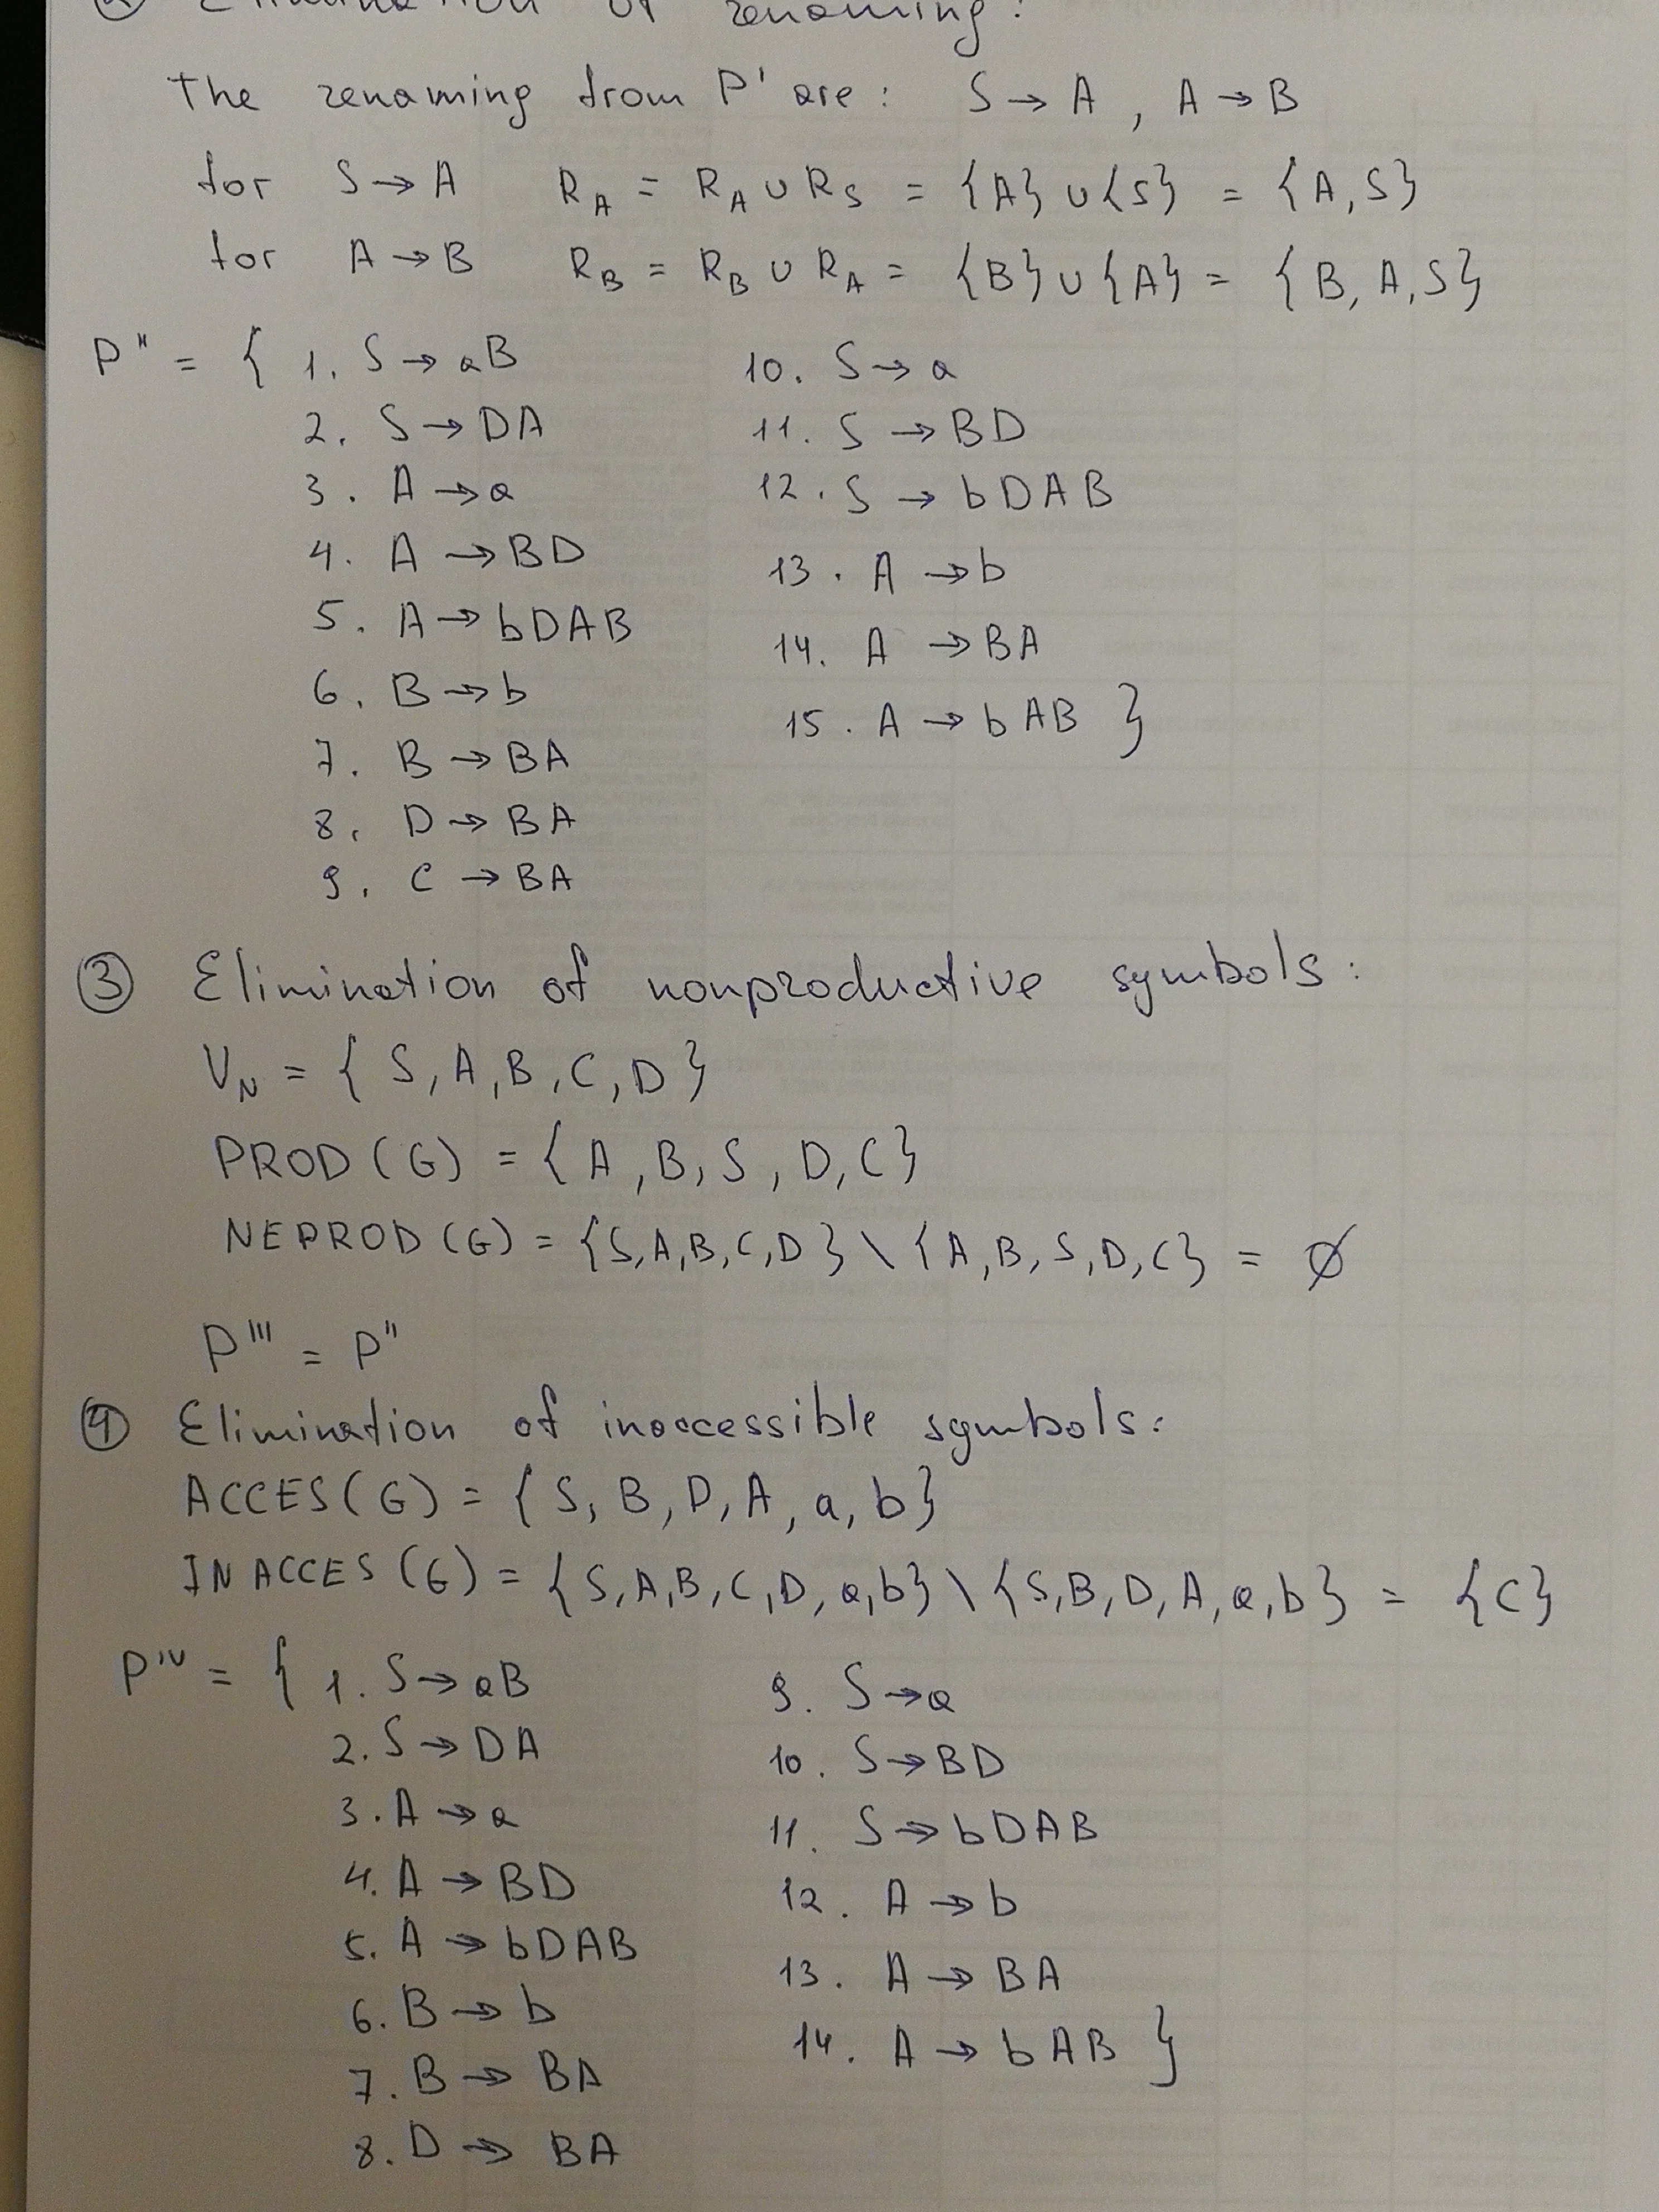 ② Elimination of renaming:
The renaming from P' are: S → A , A → B
for S → A R_A = R_A ∪ R_S = {A} ∪ {S} = {A, S}
for A → B R_B = R_B ∪ R_A = {B} ∪ {A} = {B, A, S}
P'' = { 1. S → aB
2. S → DA
3. A → a
4. A → BD
5. A → bDAB
6. B → b
7. B → BA
8. D → BA
9. C → BA
10. S → a
11. S → BD
12. S → bDAB
13. A → b
14. A → BA
15. A → bAB }
③ Elimination of nonproductive symbols:
V_N = { S, A, B, C, D }
PROD (G) = { A, B, S, D, C }
NEPROD (G) = {S, A, B, C, D } \ { A, B, S, D, C} = ∅
P''' = P''
④ Elimination of inaccessible symbols:
ACCES(G) = { S, B, D, A, a, b }
INACCES (G) = {S, A, B, C, D, a, b} \ {S, B, D, A, a, b } = {C}
P^IV = { 1. S → aB
2. S → DA
3. A → a
4. A → BD
5. A → bDAB
6. B → b
7. B → BA
8. D → BA
9. S → a
10. S → BD
11. S → bDAB
12. A → b
13. A → BA
14. A → bAB }